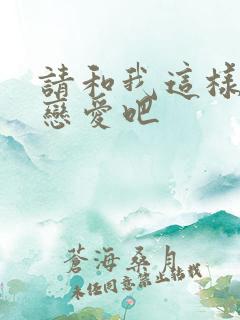 請和我這樣
戀愛吧
蒼海桑月
未经同意禁止转载